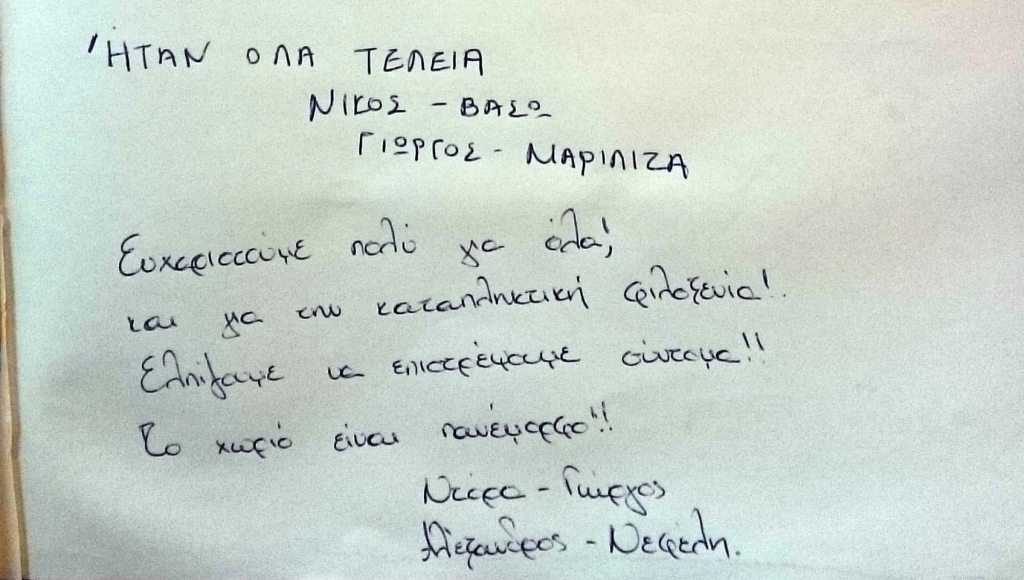 Ήταν ΟΛΑ ΤΕΛΕΙΑ
ΝΙΚΟΣ - ΒΑΣΩ
ΓΙΩΡΓΟΣ - ΜΑΡΙΛΙΖΑ
Ευχαριστούμε πολύ για όλα!
και για την καταπληκτική φιλοξενία!.
Ελπίζουμε να επιστρέψουμε σύντομα!!
Το χωριό είναι πανέμορφο!!
Ντόρα - Γιώργος
Αλέξανδρος - Νεφέλη.